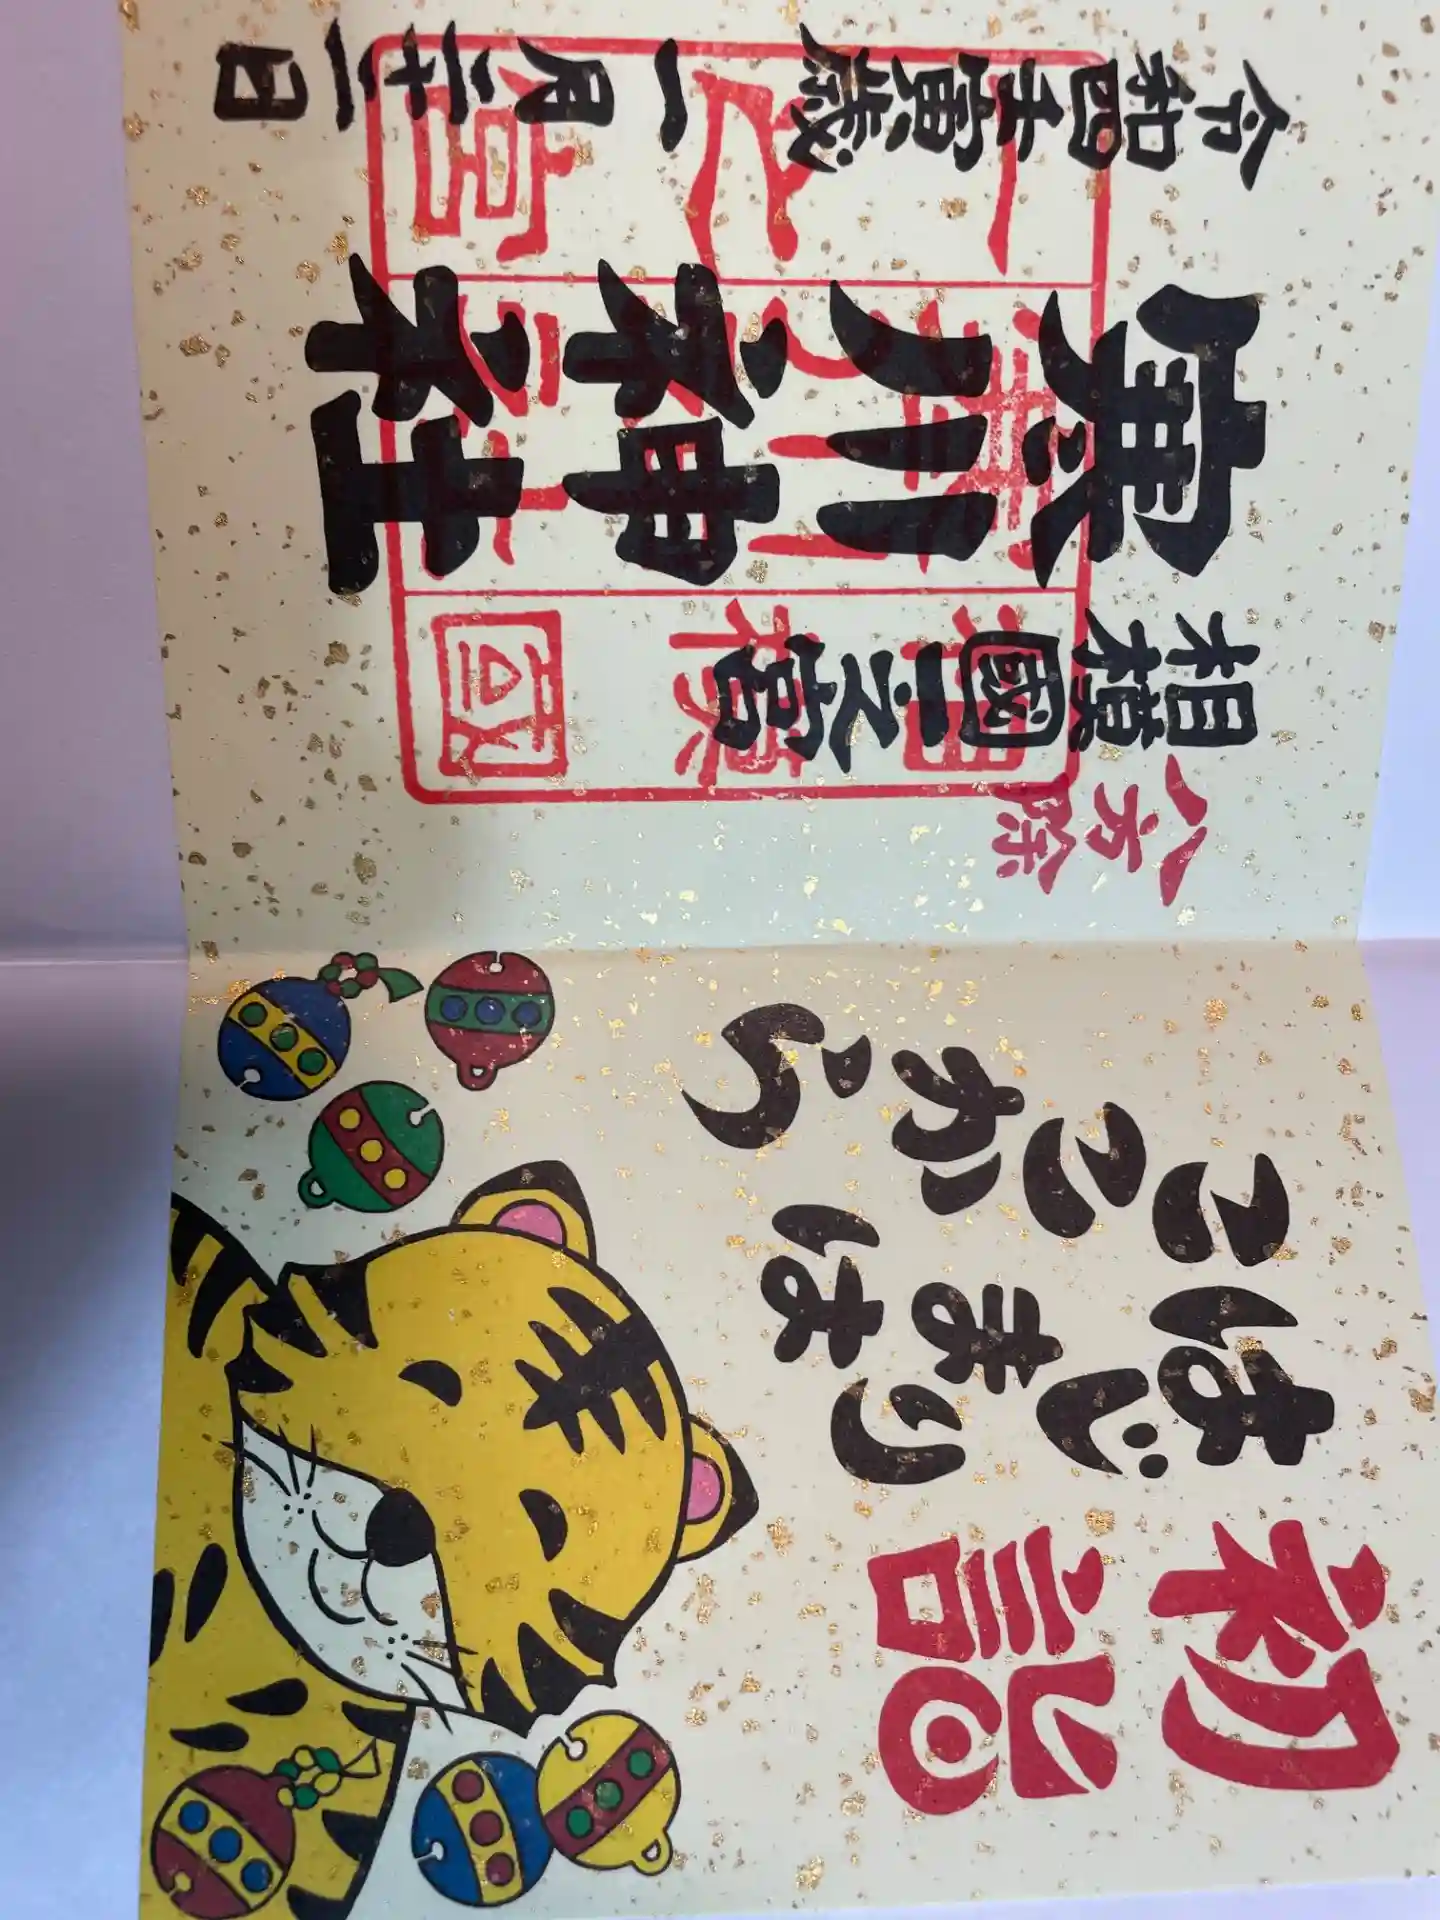 初詣
はじまりは
ここから
八方除
相模國一之宮
寒川神社
令和四壬寅歳一月二十二日
相模
寒川神社
一之宮